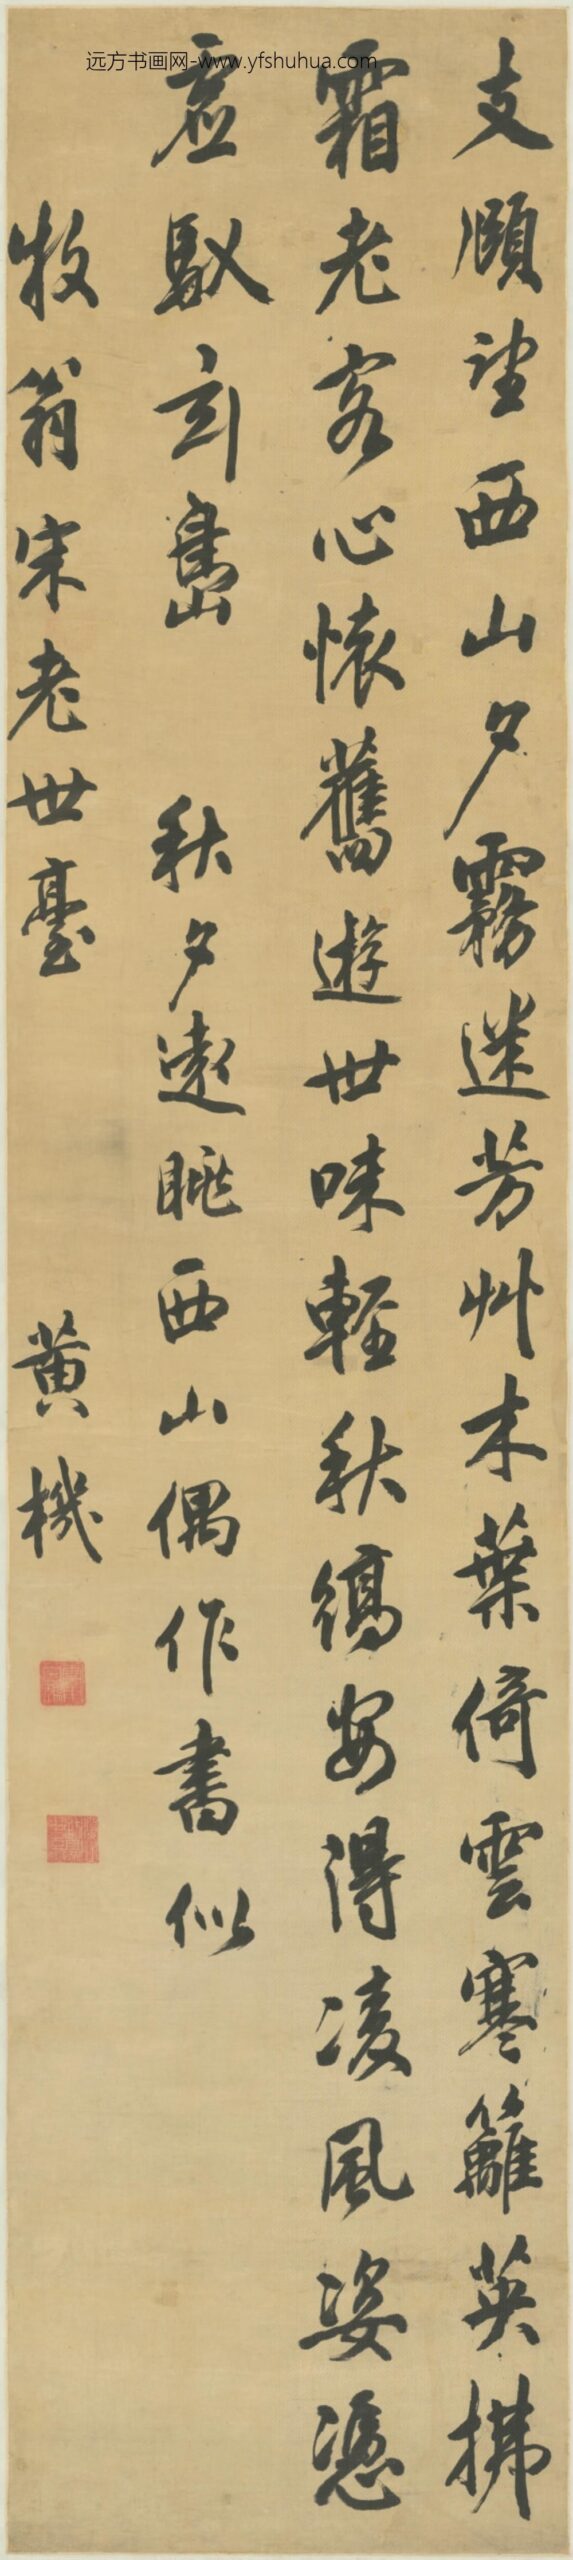 远方书画网-www.yfshuhua.com
支頤望西山夕霧迷芳艸木葉倚雲寒籬英拂
霜老客心懷舊遊世味輕秋縞安得凌風姿憑
虛馭島 秋夕遠眺西山偶作書似
牧翁宋老世臺 黃機